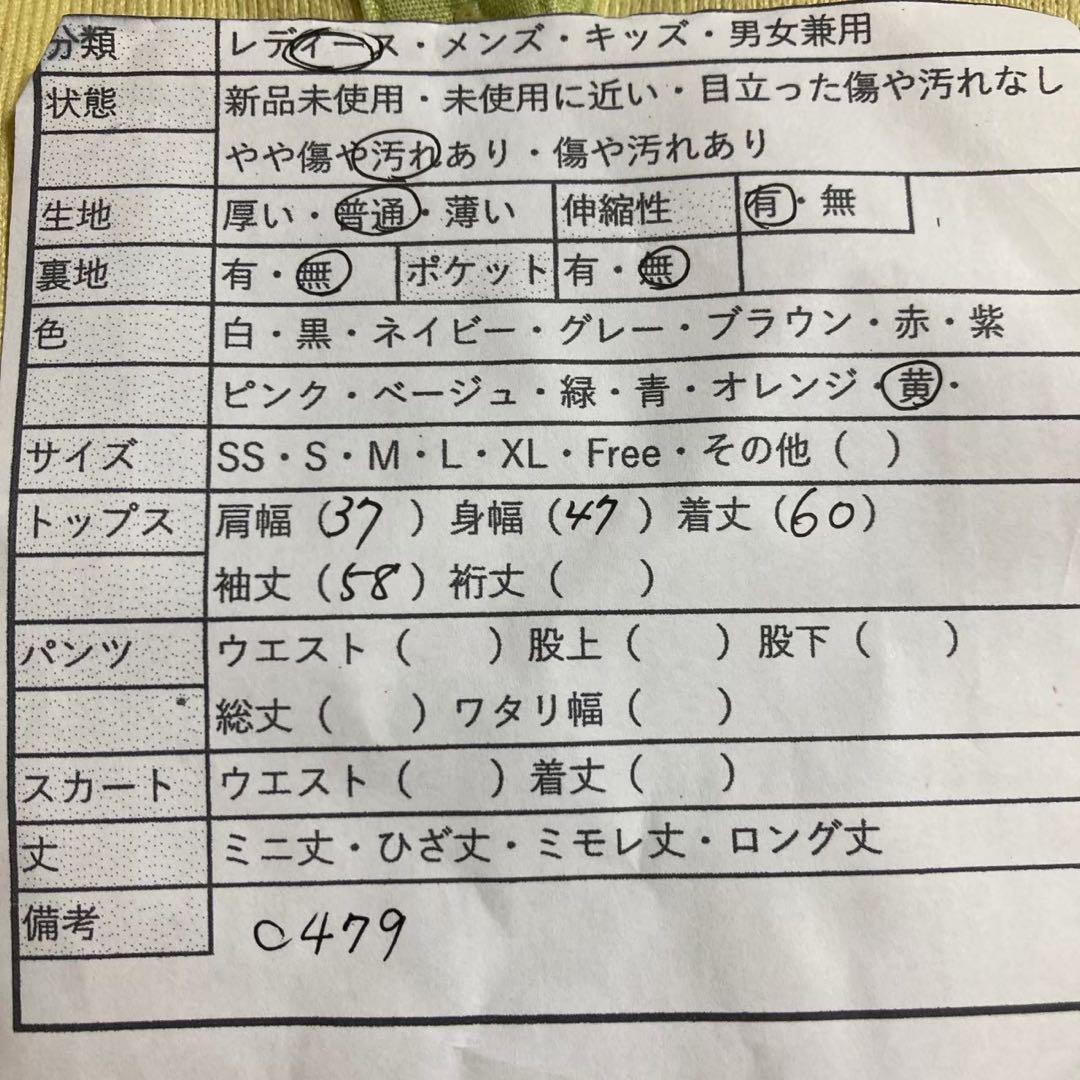 分類 レディース・メンズ・キッズ・男女兼用
状態 新品未使用・未使用に近い・目立った傷や汚れなし
やや傷や汚れあり・傷や汚れあり
生地 厚い・普通・薄い 伸縮性 有・無
裏地 有・無 ポケット 有・無
色 白・黒・ネイビー・グレー・ブラウン・赤・紫
ピンク・ベージュ・緑・青・オレンジ・黄・
サイズ SS・S・M・L・XL・Free・その他（ ）
トップス 肩幅（37 ）身幅（47 ）着丈（60）
袖丈（58）裄丈（ ）
パンツ ウエスト（ ）股上（ ）股下（ ）
総丈（ ）ワタリ幅（ ）
スカート ウエスト（ ）着丈（ ）
丈 ミニ丈・ひざ丈・ミモレ丈・ロング丈
備考 C479